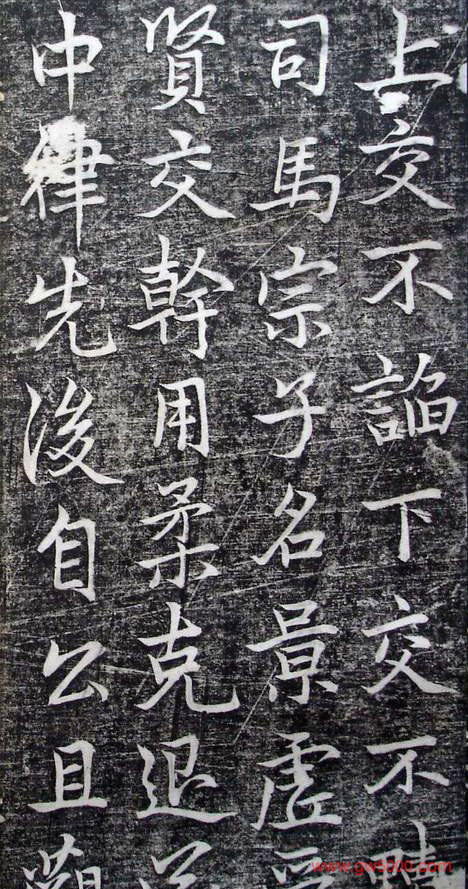 上交不諂下交不
司馬宗子名景虛
賢交幹用柔克退
中律先後自公且